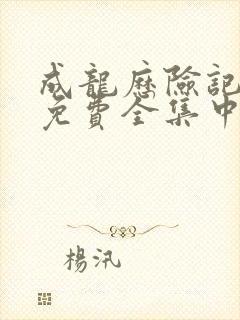 成龍歷險記
免費全集中
楊汛